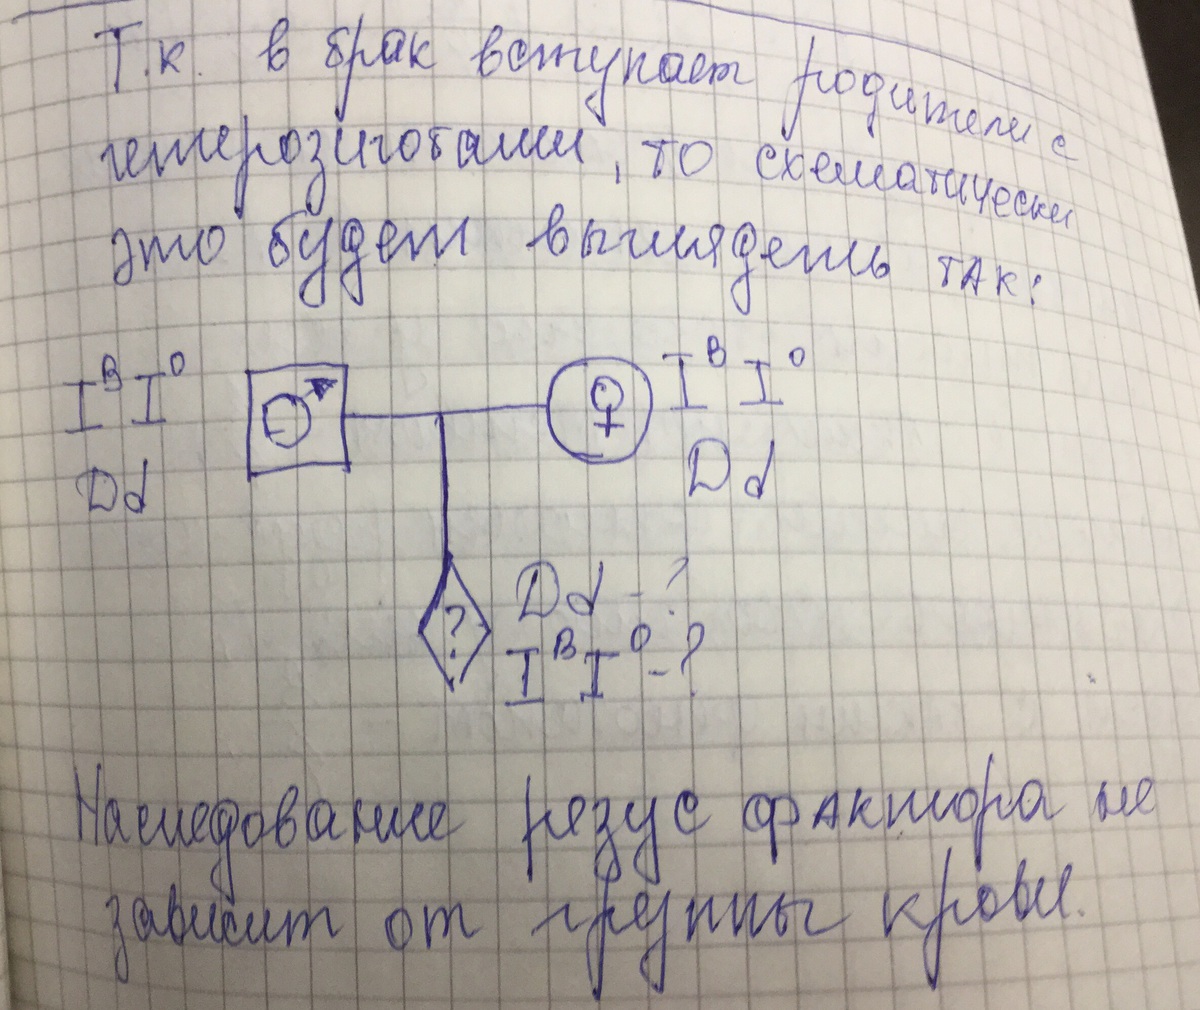 Т.к. в брак вступает родители с
гетерозиготами, то схематически
это будет выглядеть так:
I^B I^O ♂ ♀ I^B I^O
Dd Dd
? Dd - ?
I^B I^O - ?
Наследование резус фактора не
зависит от группы крови.